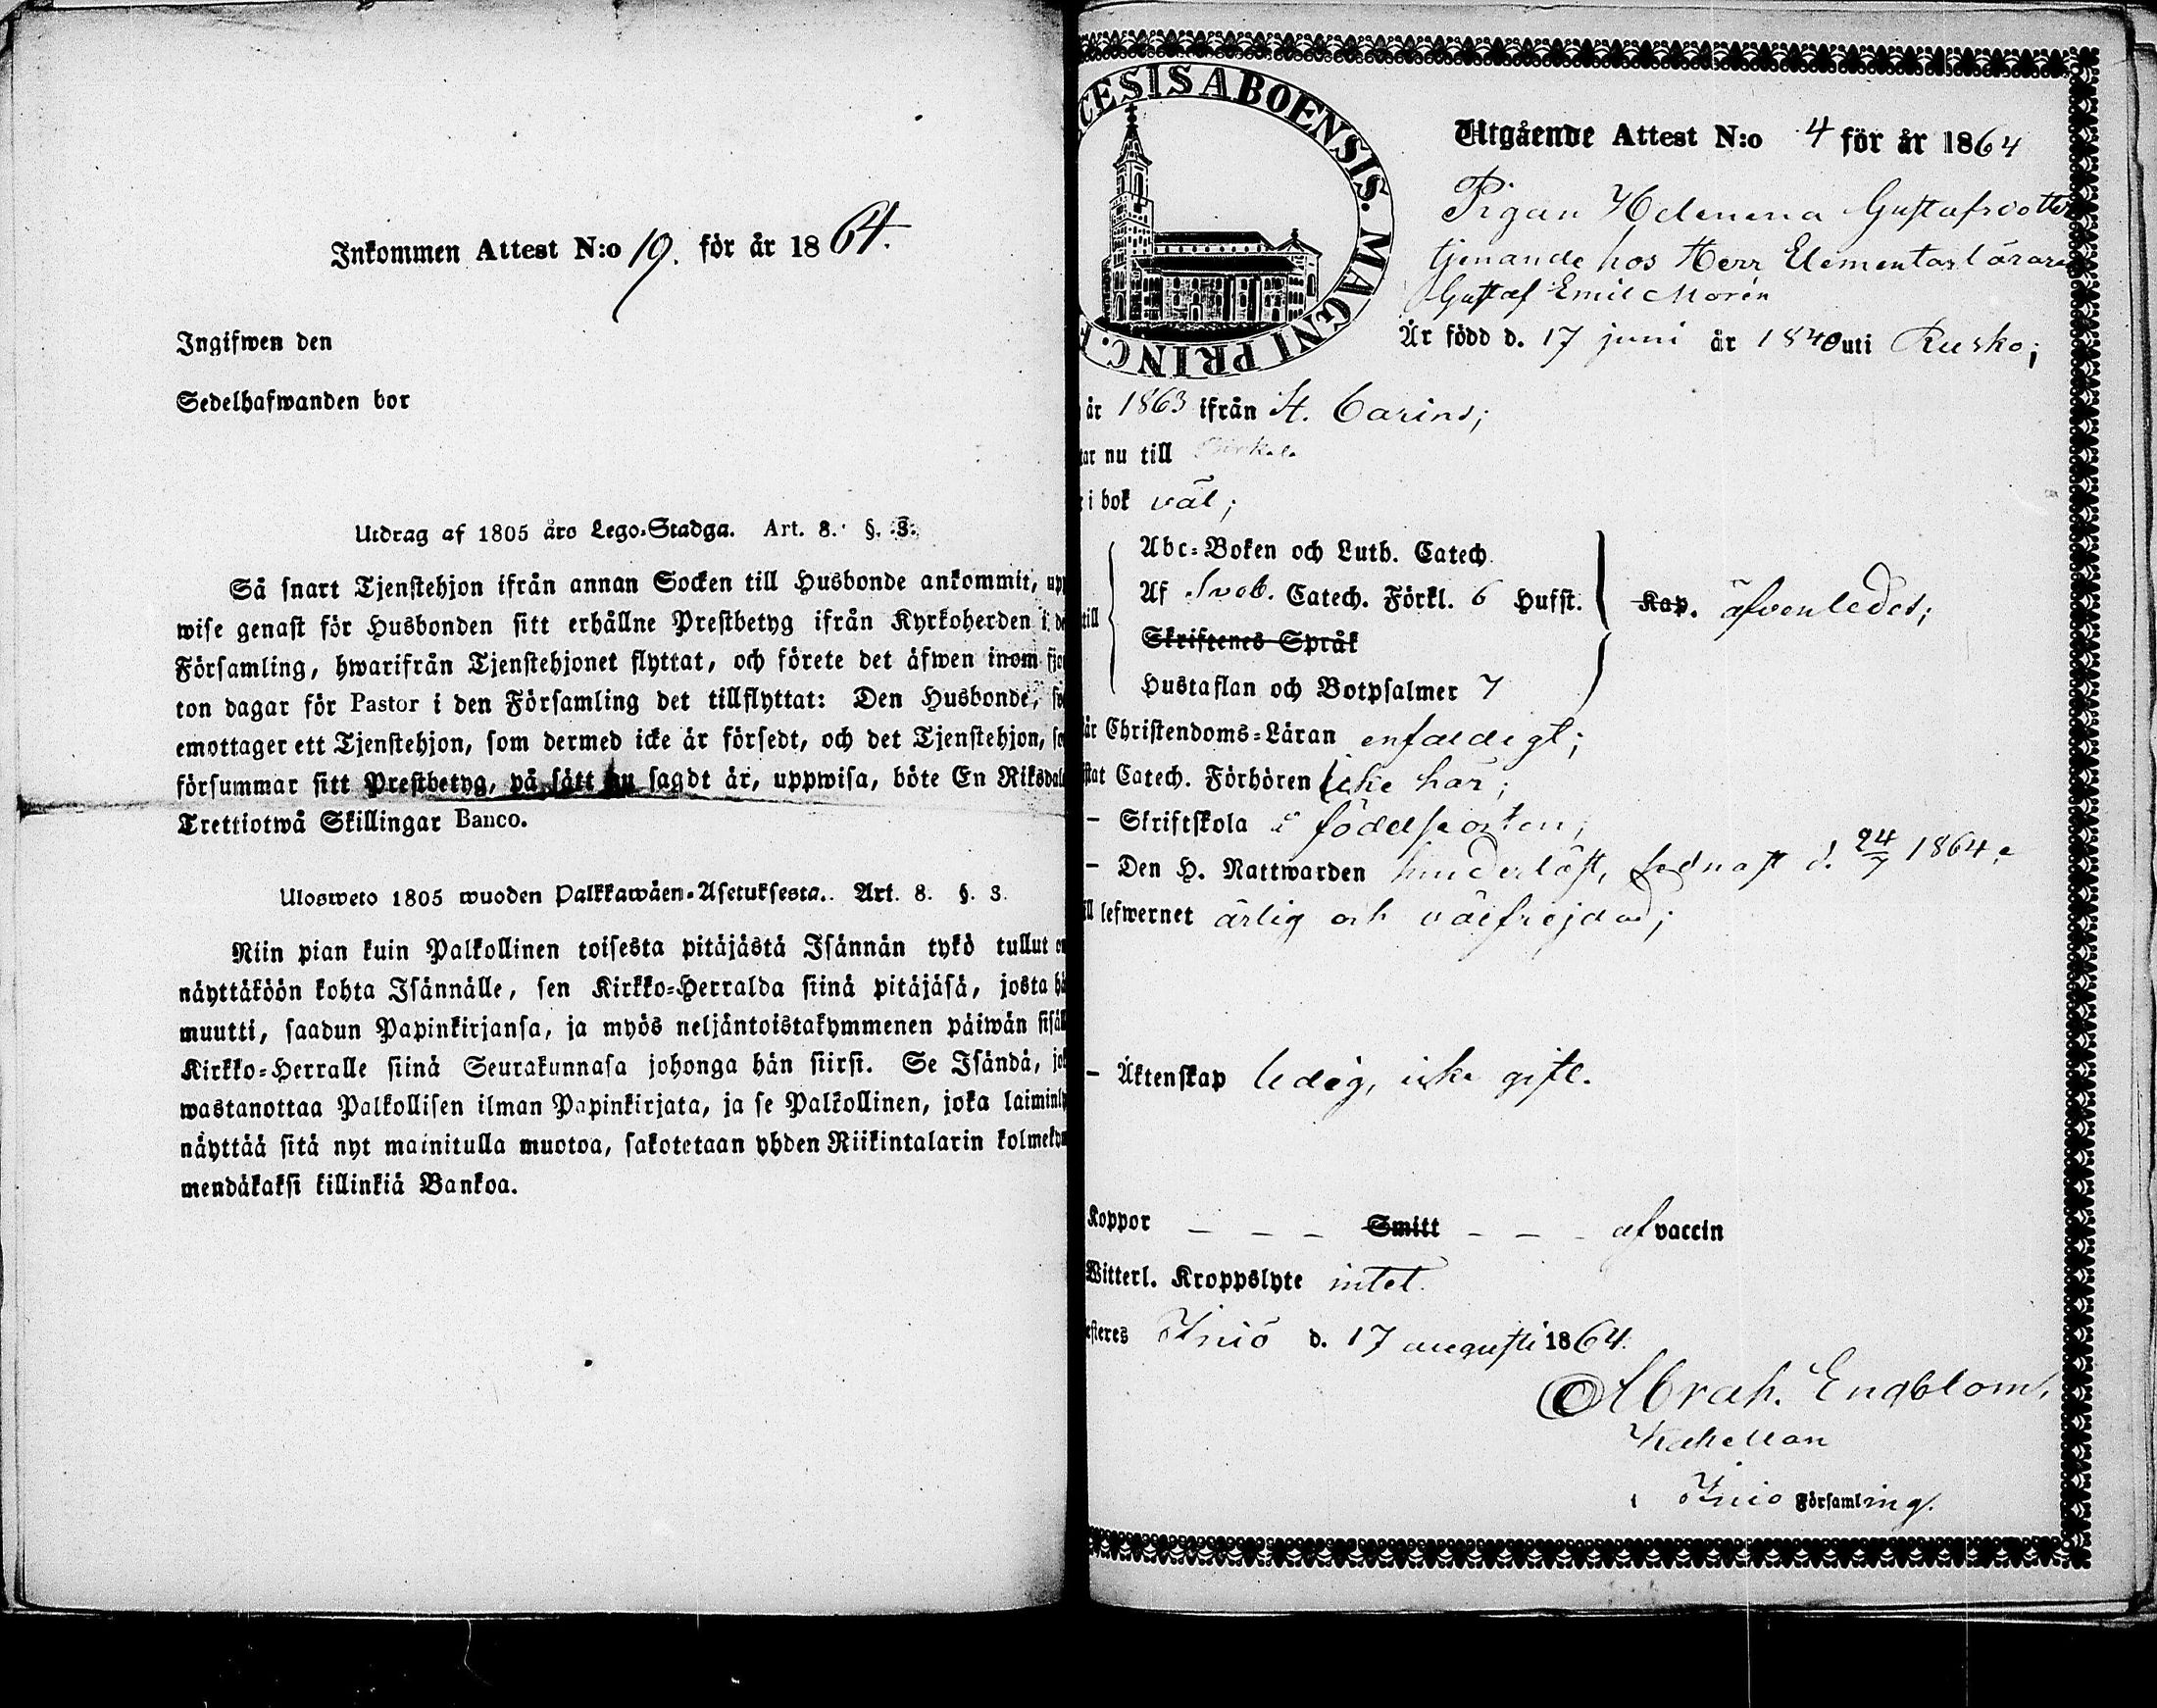 Inkommen Attest N:o 19. för år 1864.
Ingifwen den
Sedelhafwanden bor
Utdrag af 1805 års Lego-Stadga. Art. 8. §. 3.
Så snart Tjenstehjon ifrån annan Socken till Husbonde ankommit, upp
wise genast för Husbonden sitt erhållne Prestbetyg ifrån Kyrkoherden i de
Församling, hwarifrån Tjenstehjonet flyttat, och förete det äfwen inom fjor
ton dagar för Pastor i den Församling det tillflyttat: Den Husbonde,
emottager ett Tjenstehjon, som dermed icke är försedt, och det Tjenstehjon,
försummar sitt Prestbetyg, på sätt nu sagdt är, uppwisa, böte En Riksdal
Trettiotwå Skillingar Banco.
Ulosweto 1805 wuoden Palkkawäen-Asetuksesta. Art. 8. §. 3.
Niin pian kuin Palkollinen toisesta pitäjästä Isännän tykö tullut on
näyttäköön kohta Isännälle, sen Kirkko-Herralda siinä pitäjäsä, josta hä
muutti, saadun Papinkirjansa, ja myös neljäntoistakymmenen päiwän sisäll
Kirkko-Herralle siinä Seurakunnasa johonga hän siirsi. Se Isändä, jok
wastanottaa Palkollisen ilman Papinkirjata, ja se Palkollinen, joka laiminly
näyttää sitä nyt mainitulla muotoa, sakotetaan yhden Riikintalarin kolmekym
mendäkaksi killinkiä Bankoa.
CESIS ABOENSIS. MAGNI PRINC. F
Utgående Attest N:o 4 för år 1864
Pigan Helena Gustafsdotter
tjenande hos Herr Elementarläraren
Gustaf Emil Morén
Är född d. 17 juni år 1840 uti Rusko;
år 1863 ifrån St. Carins;
tar nu till Birkala
i bok väl;
till
Abc-Boken och Luth. Catech.
Af Sveb. Catech. Förkl. 6 Hufst. Kap. äfvenledes;
Skriftenes Språk
Hustaflan och Botpsalmer 7
år Christendoms-Läran enfaldigt;
stat Catech. Förhören icke här;
– Skriftskola i födelseorten;
– Den H. Nattwarden hinderlöst, sednast d. 24/7 1864.
ll lefwernet ärlig och välfrejdad;
– Äktenskap ledig, icke gift.
Koppor – – – Smitt – – – af vaccin
Witterl. Kroppslyte intet.
esteres Iniö d. 17 augusti 1864.
Abrah. Engblom,
Kapellan
i Iniö Församling.